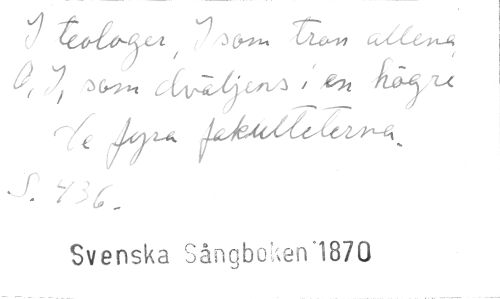 I teologer, I som tron allena
O, I, som dväljens i en högre
De fyra fakulteterna.
S. 436.
Svenska Sångboken 1870